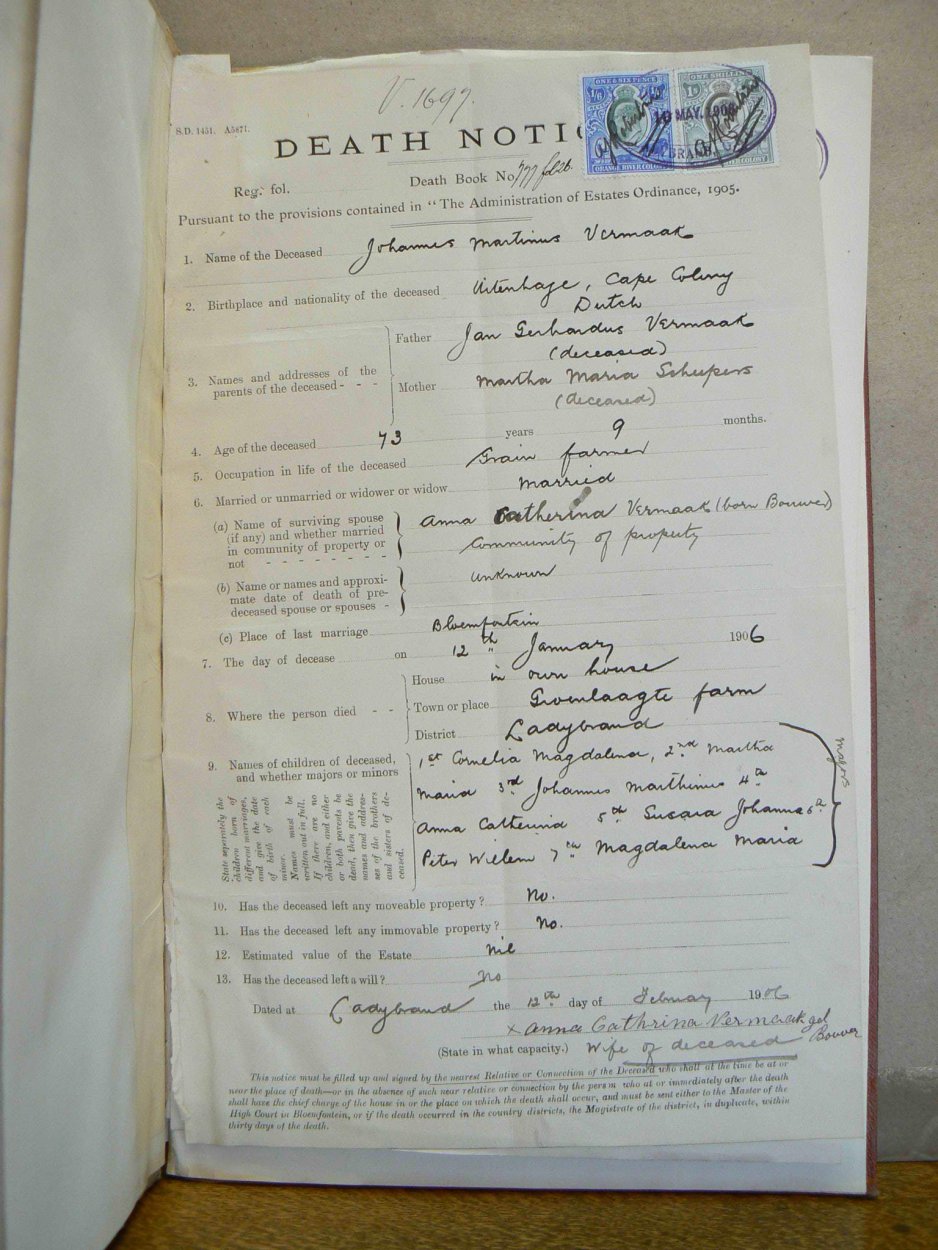 V. 1697.
S.D. 1451. A5871.
ONE & SIX PENCE
1/6 1/6
ORANGE RIVER COLONY
ONE SHILLING
10 MAY. 1906
DEATH NOTIC
Reg. fol. Death Book No.
Pursuant to the provisions contained in "The Administration of Estates Ordinance, 1905.
1. Name of the Deceased Johannes Martinus Vermaak
2. Birthplace and nationality of the deceased Uitenhage, Cape Colony
Dutch
3. Names and addresses of the parents of the deceased - - -
Father Jan Gerhardus Vermaak
(deceased)
Mother Martha Maria Scheepers
(deceased)
4. Age of the deceased 73 years 9 months.
5. Occupation in life of the deceased Grain farmer
6. Married or unmarried or widower or widow Married
(a) Name of surviving spouse
(if any) and whether married
in community of property or
not - - - - - - - -
Anna Catherina Vermaak (born Bouwer)
Community of property
(b) Name or names and approxi-
mate date of death of pre-
deceased spouse or spouses -
unknown
(c) Place of last marriage Bloemfontein
7. The day of decease on 12th January 1906
8. Where the person died - -
House in own house
Town or place Groenlaagte farm
District Ladybrand
9. Names of children of deceased,
and whether majors or minors
State separately the
children born of
different marriages,
and give the date
of birth of each
minor.
Names must be
written out in full.
If there are no
children, and either
or both parents be
dead, then give the
names and addres-
ses of the brothers
and sisters of de-
ceased.
1st Cornelia Magdalena, 2nd Martha
Maria 3rd Johannes Marthinus 4th
Anna Catherina 5th Susara Johanna 6th
Peter Willem 7th Magdalena Maria
majors
10. Has the deceased left any moveable property? No.
11. Has the deceased left any immovable property? No.
12. Estimated value of the Estate Nil
13. Has the deceased left a will? No
Dated at Ladybrand the 12th day of February 1906
x Anna Cathrina Vermaak gel
Bouver
(State in what capacity.) Wife of deceased
This notice must be filled up and signed by the nearest Relative or Connection of the Deceased who shall at the time be at or
near the place of death—or in the absence of such near relative or connection by the person who at or immediately after the death
shall have the chief charge of the house in or the place on which the death shall occur, and must be sent either to the Master of the
High Court in Bloemfontein, or if the death occurred in the country districts, the Magistrate of the district, in duplicate, within
thirty days of the death.